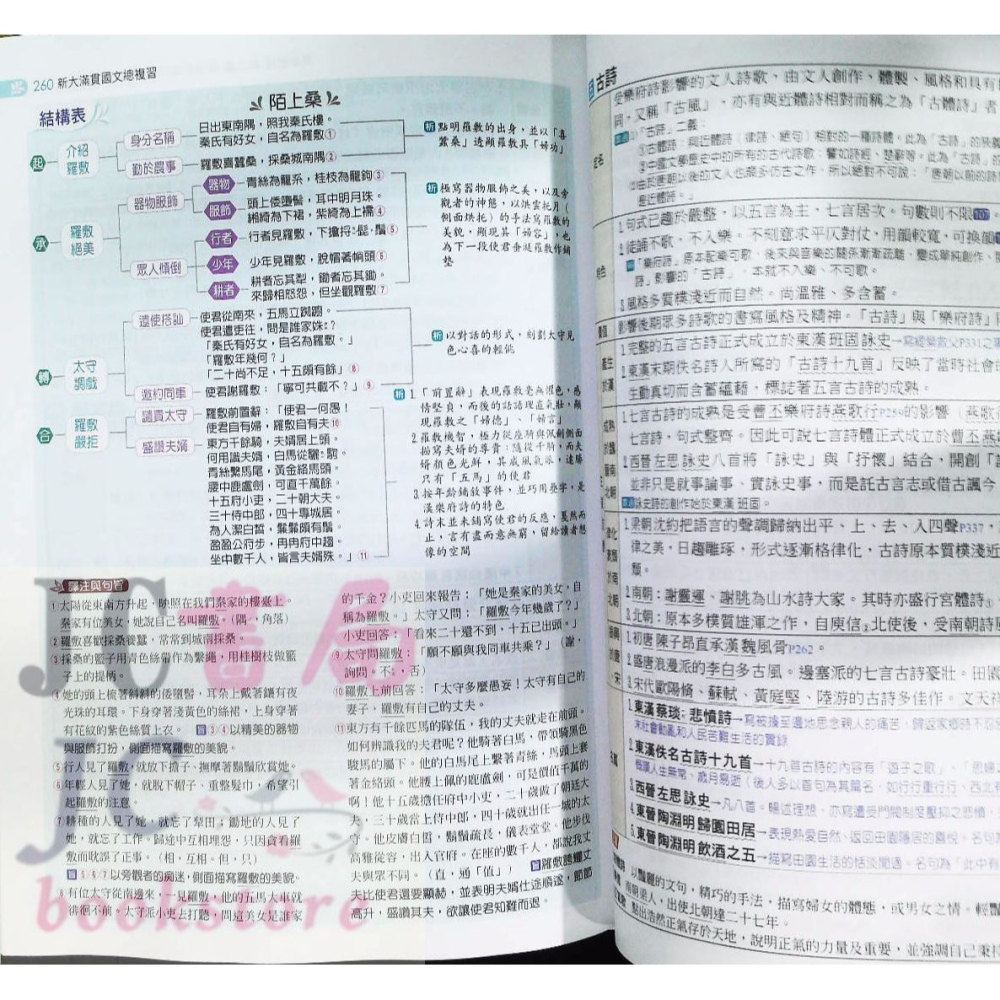 260 新大滿貫國文總複習
陌上桑
結構表
起
介紹羅敷
身分名稱
日出東南隅，照我秦氏樓。
秦氏有好女，自名為羅敷①
析 點明羅敷的出身，並以「喜
蠶桑」透顯羅敷具「婦功」
勤於農事
羅敷喜蠶桑，採桑城南隅②
承
羅敷絕美
器物服飾
器物
青絲為籠系，桂枝為籠鉤③
服飾
頭上倭墮髻，耳中明月珠。
緗綺為下裙，紫綺為上襦④
析 極寫器物服飾之美，以及旁
觀者的神態，以烘雲托月（
側面烘托）的手法寫羅敷的
美貌，顯現其「婦容」，也
為下一段使君垂涎羅敷作鋪
墊
眾人傾倒
行者
行者見羅敷，下擔捋髭鬚⑤
少年
少年見羅敷，脫帽著帩頭⑥
耕者
耕者忘其犁，鋤者忘其鋤。
來歸相怨怒，但坐觀羅敷⑦
轉
太守調戲
遣使搭訕
使君從南來，五馬立踟躕。
使君遣吏往，問是誰家姝？
「秦氏有好女，自名為羅敷。」
「羅敷年幾何？」
「二十尚不足，十五頗有餘」⑧
析 以對話的形式，刻劃太守見
色心喜的輕佻
邀約同車
使君謝羅敷：「寧可共載不？」⑨
合
羅敷嚴拒
譴責太守
羅敷前置辭：「使君一何愚！
使君自有婦，羅敷自有夫⑩
盛讚夫婿
東方千餘騎，夫婿居上頭。
何用識夫婿，白馬從驪駒。
青絲繫馬尾，黃金絡馬頭。
腰中鹿盧劍，可直千萬餘。
十五府小吏，二十朝大夫。
三十侍中郎，四十專城居。
為人潔白皙，鬑鬑頗有鬚。
盈盈公府步，冉冉府中趨。
坐中數千人，皆言夫婿殊。」⑪
析 1.「前置辭」表現羅敷毫無懼色，感
情堅貞，而後的話語理直氣壯，顯
現羅敷之「婦德」、「婦言」
2.羅敷機智，極力從座騎與佩劍側面
描寫夫婿的尊貴：隨從千騎，而夫
婿顏色光鮮，其威風氣派，遠勝
只有「五馬」的使君
3.按年齡鋪敘事件，並巧用疊字，是
漢樂府詩的特色
4.詩末並未鋪寫使君的反應，戛然而
止，言有盡而意無窮，留給讀者想
像的空間
譯注與句旨
①太陽從東南方升起，映照在我們秦家的樓臺上。
秦家有位美女，她說自己名叫羅敷。（隅，角落）
②羅敷喜歡採桑養蠶，常常到城南採桑。
③採桑的籃子用青色絲帶作為繫繩，用桂樹枝做籃
子上的提柄。
④她的頭上梳著斜斜的倭墮髻，耳朵上戴著鑲有夜
光珠的耳環。下身穿著淺黃色的絲裙，上身穿著
有花紋的紫色絲質上衣。旨③④以精美的器物
與服飾打扮，側面描寫羅敷的美貌。
⑤行人見了羅敷，就放下擔子、撫摩著鬍鬚欣賞她。
⑥年輕人見了她，就脫下帽子、重整髮巾，希望引
起羅敷的注意。
⑦耕種的人見了她，就忘了犁田；鋤地的人見了
她，就忘了工作。歸途中互相埋怨，只因貪看羅
敷而耽誤了正事。（相，互相。但，只）
旨⑤⑥⑦以旁觀者的痴迷，側面描寫羅敷的美貌。
⑧有位太守從南邊來，一見羅敷，他的五馬大車就
徘徊不前。太守派小吏去打聽，問這美女是誰家
的千金？小吏回來報告：「她是秦家的美女，自
稱為羅敷。」太守又問：「羅敷今年幾歲了？」
小吏回答：「看來二十還不到，十五已出頭。」
⑨太守問羅敷：「願不願與我同車共乘？」（謝，
詢問。不：否）
⑩羅敷上前回答：「太守多麼愚妄！太守有自己的
妻子，羅敷有自己的丈夫。
⑪東方有千餘匹馬的隊伍，我的丈夫就走在前頭。
如何辨識我的夫君呢？他騎著白馬，帶領騎黑色
駿馬的屬下。他的白馬尾上繫著青絲，馬頭上新
著金絡頭。他腰上佩的鹿盧劍，可是價值千萬的
啊！他十五歲擔任府中小吏，二十歲做了朝廷大
夫，三十歲當上侍中郎，四十歲就出任一城的太
守。他皮膚白皙，鬍鬚疏長，儀表堂堂。他步伐
高雅從容，出入官府。在座的數千人，都說我丈
夫與眾不同。（直，通「值」）旨羅敷聽耀丈
夫比使君還要顯赫，並表明夫婿仕途順遂，節節
高升，盛讚其夫，欲讓使君知難而退。
JC書局
JC
bookstore
古詩
受樂府詩影響的文人詩歌，由文人創作，體製、風格和具有
同，又稱「古風」，亦有與近體詩相對而稱之為「古體詩」者
「古詩」二義：
①古體詩：與近體詩（律詩、絕句）相對的一種詩體。此為「古詩」的
②中國文學歷史中的所有的古代詩歌：譬如詩經、楚辭等。此為「古詩」的
由於唐朝以後的文人也常多仿古之作，所以絕對不可說：「唐朝以前的詩
是近體詩。」
1.句式已趨於嚴整，以五言為主，七言居次。句數則不限
2.徒誦不歌、不入樂。不刻意求平仄對仗，用韻較寬，可換韻
「樂府詩」原本配樂可歌，後來與音樂的關係漸漸疏離，變成單純創作、
詩」影響的「古詩」，本就不入樂、不可歌。
3.風格多質樸淺近而自然。尚溫雅、多含蓄。
影響後期眾多詩歌的書寫風格及精神。「古詩」與「樂府詩」
1.完整的五言古詩正式成立於東漢班固詠史→寫緹縈救父P331之事
2.東漢末期佚名詩人所寫的「古詩十九首」反映了當時社會的
生動真切而含蓄蘊藉，標誌著五言古詩的成熟。
1.七言古詩的成熟是受曹丕樂府詩燕歌行P256的影響（燕歌
七言詩，句式整齊。因此可說七言詩體正式成立於曹丕燕
2.西晉左思詠史八首將「詠史」與「抒懷」結合，開創「
並非只是就事論事、實詠史事，而是託古言志或借古諷今
詠史詩的創作始於東漢 班固。
1.梁朝沈約把語言的聲調歸納出平、上、去、入四聲P337，
律之美，日趨雕琢，形式逐漸格律化，古詩原本質樸淺近
類。
2.南朝：謝靈運、謝朓為山水詩大家。其時亦盛行宮體詩①
3.北朝：原本多樸質雄渾之作，自庾信②北使後，受南朝詩
1.初唐 陳子昂直承漢魏風骨P262。
2.盛唐浪漫派的李白多古風。邊塞派的七言古詩豪壯。田園
3.宋代歐陽脩、蘇軾、黃庭堅、陸游的古詩多佳作。文天祥
1.東漢蔡琰：悲憤詩→寫被擄至邊地思念親人的痛苦，歸返家鄉時不忍
末社會動亂和人民苦難生活的實錄
2.東漢佚名古詩十九首→十九首古詩的內容有「遊子之歌」、「思婦
慨嘆人生無常、歲月易逝（後人多以首句為其篇名，如行行重行行、西北有
3.西晉左思詠史→凡八首。暢述理想，亦寫遭受門閥制度壓抑之悲憤，
4.東晉陶淵明歸園田居→表現熱愛自然、返回田園隱居的喜悅。名句
5.東晉陶淵明飲酒之五→描寫田園生活的恬淡閒適。名句為「此中有
以豔麗的文句，精巧的手法，描寫婦女的體態，或男女之情。輕豔
南朝人，出使北朝達二十七年。
點出浩然正氣存於天地，說明正氣的力量及重要，並強調自己秉持